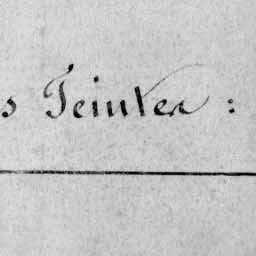 s Teintes :